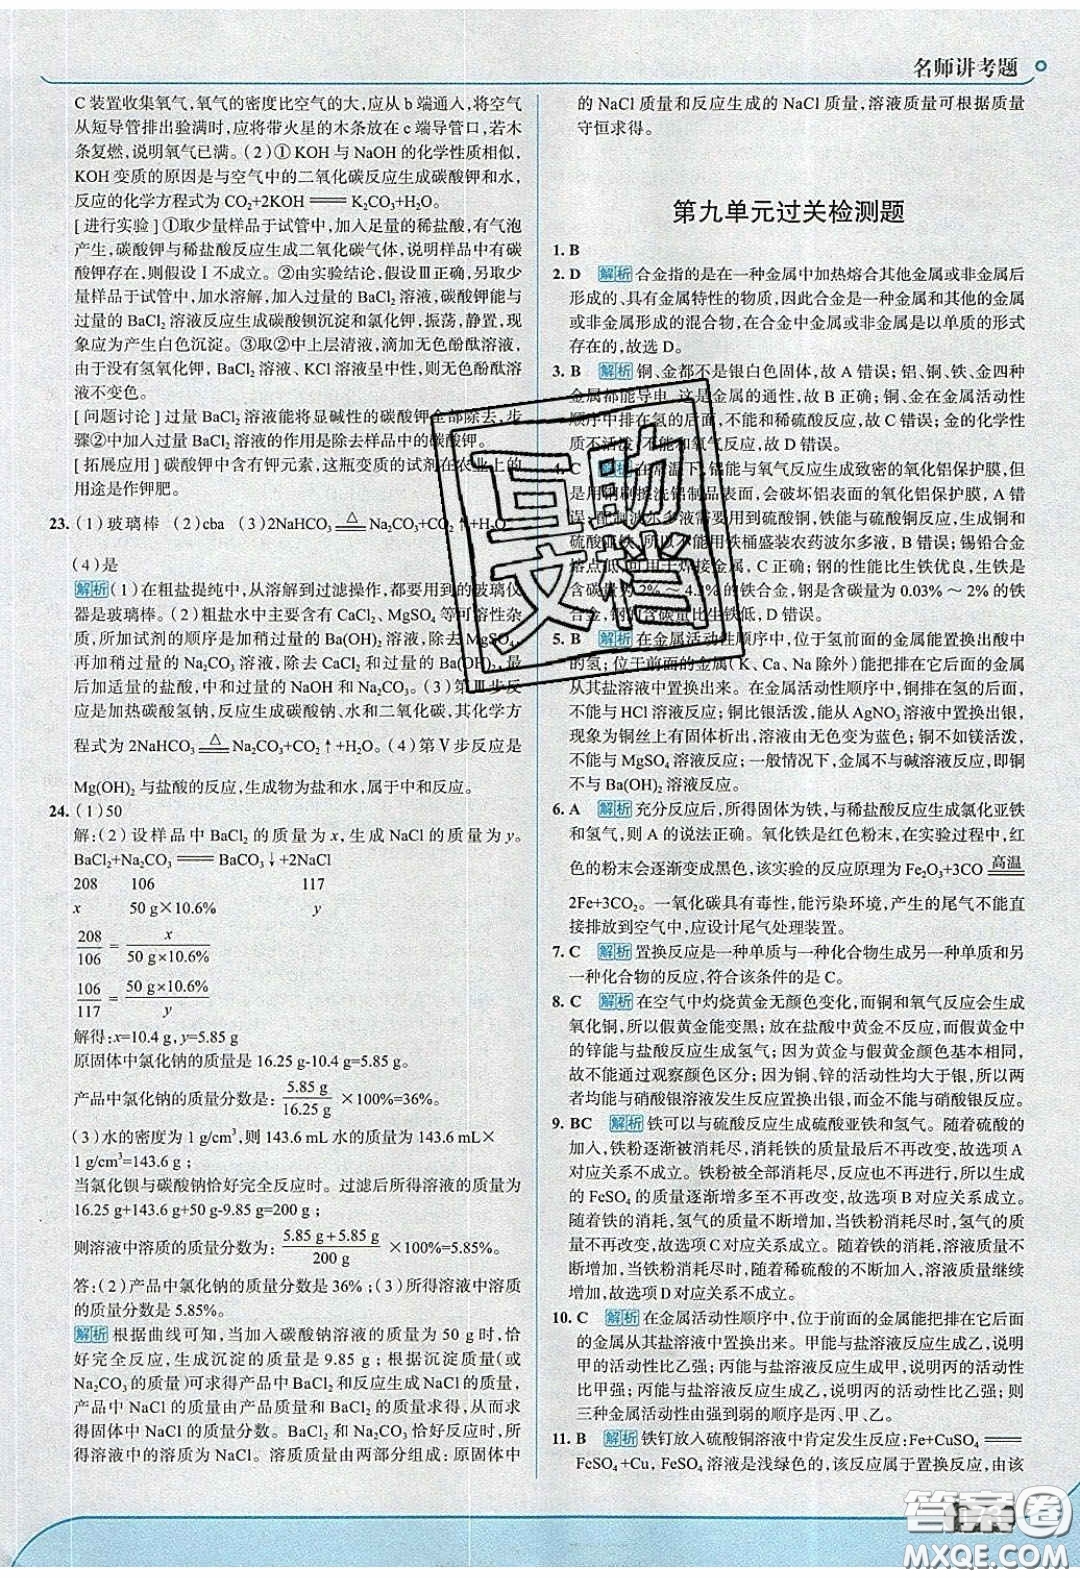 名师讲考题
C 装置收集氧气,氧气的密度比空气的大,应从 b 端通入,将空气
从短导管排出验满时,应将带火星的木条放在 c 端导管口,若木
条复燃,说明氧气已满。(2)① KOH 与 NaOH 的化学性质相似,
KOH 变质的原因是与空气中的二氧化碳反应生成碳酸钾和水,
反应的化学方程式为 CO₂+2KOH══K₂CO₃+H₂O。
[ 进行实验 ] ①取少量样品于试管中,加入足量的稀盐酸,有气泡
产生,碳酸钾与稀盐酸反应生成二氧化碳气体,说明样品中有碳
酸钾存在,则假设Ⅰ不成立。②由实验结论,假设Ⅲ正确,另取少
量样品于试管中,加水溶解,加入过量的 BaCl₂ 溶液,碳酸钾能与
过量的 BaCl₂ 溶液反应生成碳酸钡沉淀和氯化钾,振荡,静置,现
象应为产生白色沉淀。③取②中上层清液,滴加无色酚酞溶液,
由于没有氢氧化钾, BaCl₂ 溶液、KCl 溶液呈中性,则无色酚酞溶
液不变色。
[ 问题讨论 ] 过量 BaCl₂ 溶液能将显碱性的碳酸钾全部除去,步
骤②中加入过量 BaCl₂ 溶液的作用是除去样品中的碳酸钾。
[ 拓展应用 ] 碳酸钾中含有钾元素,这瓶变质的试剂在农业上的
用途是作钾肥。
23. (1)玻璃棒 (2)cba (3)2NaHCO₃ △══ Na₂CO₃+CO₂↑+H₂O
(4)是
解析 (1)在粗盐提纯中,从溶解到过滤操作,都要用到的玻璃仪
器是玻璃棒。(2)粗盐水中主要含有 CaCl₂、MgSO₄ 等可溶性杂
质,所加试剂的顺序是加稍过量的 Ba(OH)₂ 溶液,除去 MgSO₄,
再加稍过量的 Na₂CO₃ 溶液,除去 CaCl₂ 和过量的 Ba(OH)₂,最
后加适量的盐酸,中和过量的 NaOH 和 Na₂CO₃。(3)第Ⅲ步反
应是加热碳酸氢钠,反应生成碳酸钠、水和二氧化碳,其化学方
程式为 2NaHCO₃ △══ Na₂CO₃+CO₂↑+H₂O。(4)第Ⅴ步反应是
Mg(OH)₂ 与盐酸的反应,生成物为盐和水,属于中和反应。
24. (1)50
解:(2)设样品中 BaCl₂ 的质量为 x,生成 NaCl 的质量为 y。
BaCl₂+Na₂CO₃══BaCO₃↓+2NaCl
208 106 117
x 50 g×10.6% y
208/106 = x/(50 g×10.6%)
106/117 = (50 g×10.6%)/y
解得:x=10.4 g,y=5.85 g
原固体中氯化钠的质量是 16.25 g-10.4 g=5.85 g。
产品中氯化钠的质量分数是: 5.85 g/16.25 g ×100%=36%。
(3)水的密度为 1 g/cm³,则 143.6 mL 水的质量为 143.6 mL×
1 g/cm³=143.6 g ;
当氯化钡与碳酸钠恰好完全反应时。过滤后所得溶液的质量为
16.25 g+143.6 g+50 g-9.85 g=200 g ;
则溶液中溶质的质量分数为: (5.85 g+5.85 g)/200 g ×100%=5.85%。
答:(2)产品中氯化钠的质量分数是 36% ;(3)所得溶液中溶质
的质量分数是 5.85%。
解析 根据曲线可知,当加入碳酸钠溶液的质量为 50 g 时,恰
好完全反应,生成沉淀的质量是 9.85 g ;根据沉淀质量(或
Na₂CO₃ 的质量)可求得产品中 BaCl₂ 和反应生成 NaCl 的质量,
产品中 NaCl 的质量由产品质量和 BaCl₂ 质量求得,从而求
得固体中 NaCl 的质量分数。BaCl₂ 和 Na₂CO₃ 恰好反应时,所
得溶液中的溶质是 NaCl。溶质质量由两部分组成:原固体中
的 NaCl 质量和反应生成的 NaCl 质量,溶液质量可根据质量
守恒求得。
第九单元过关检测题
1. B
2. D 解析 合金指的是在一种金属中加热熔合其他金属或非金属后
形成的、具有金属特性的物质,因此合金是一种金属和其他的金属
或非金属形成的混合物,在合金中金属或非金属是以单质的形式
存在的,故选 D。
3. B 解析 铜、金都不是银白色固体,故 A 错误;铝、铜、铁、金四种
金属都能导电,这是金属的通性,故 B 正确;铜、金在金属活动性
顺序中排在氢的后面,不能和稀硫酸反应,故 C 错误;金的化学性
质不活泼,不能和氧气反应,故 D 错误。
4. C 解析 在常温下,铝能与氧气反应生成致密的氧化铝保护膜,但
是用钢刷擦洗铝制品表面,会破坏铝表面的氧化铝保护膜,A 错
误;配制波尔多液需要用到硫酸铜,铁能与硫酸铜反应,生成铜和
硫酸亚铁,所以不能用铁桶盛装农药波尔多液, B 错误;锡铅合金
熔点低,可用于焊接金属,C 正确;钢的性能比生铁优良,生铁是
含碳量为 2%～4.3% 的铁合金,钢是含碳量为 0.03%～2% 的铁
合金,钢的含碳量比生铁低,D 错误。
5. B 解析 在金属活动性顺序中,位于氢前面的金属能置换出酸中
的氢;位于前面的金属(K、Ca、Na 除外)能把排在它后面的金属
从其盐溶液中置换出来。在金属活动性顺序中,铜排在氢的后面,
不能与 HCl 溶液反应;铜比银活泼,能从 AgNO₃ 溶液中置换出银,
现象为铜丝上有固体析出,溶液由无色变为蓝色;铜不如镁活泼,
不能与 MgSO₄ 溶液反应;一般情况下,金属不与碱溶液反应,即铜
不与 Ba(OH)₂ 溶液反应。
6. A 解析 充分反应后,所得固体为铁,与稀盐酸反应生成氯化亚铁
和氢气,则 A 的说法正确。氧化铁是红色粉末,在实验过程中,红
色的粉末会逐渐变成黑色,该实验的反应原理为 Fe₂O₃+3CO 高温══
2Fe+3CO₂。一氧化碳具有毒性,能污染环境,产生的尾气不能直
接排放到空气中,应设计尾气处理装置。
7. C 解析 置换反应是一种单质与一种化合物生成另一种单质和另
一种化合物的反应,符合该条件的是 C。
8. C 解析 在空气中灼烧黄金无颜色变化,而铜和氧气反应会生成
氧化铜,所以假黄金能变黑;放在盐酸中黄金不反应,而假黄金中
的锌能与盐酸反应生成氢气;因为黄金与假黄金颜色基本相同,
故不能通过观察颜色区分;因为铜、锌的活动性均大于银,所以两
者均能与硝酸银溶液发生反应置换出银,而金不能与硝酸银反应。
9. BC 解析 铁可以与硫酸反应生成硫酸亚铁和氢气。随着硫酸的
加入,铁粉逐渐被消耗尽,消耗铁的质量最后不再改变,故选项 A
对应关系不成立。铁粉被全部消耗尽,反应也不再进行,所以生成
的 FeSO₄ 的质量逐渐增多至不再改变,故选项 B 对应关系成立。
随着铁的消耗,氢气的质量不断增加,当铁粉消耗尽时,氢气的质
量不再改变,故选项 C 对应关系成立。随着铁的消耗,溶液质量不
断增加,当铁消耗尽时,随着稀硫酸的不断加入,溶液质量继续
增加,故选项 D 对应关系不成立。
10. C 解析 在金属活动性顺序中,位于前面的金属能把排在它后面
的金属从其盐溶液中置换出来。甲能与盐溶液反应生成乙,说明
甲的活动性比乙强;丙能与盐溶液反应生成甲,说明丙的活动性
比甲强;丙能与盐溶液反应生成乙,说明丙的活动性比乙强;则
三种金属活动性由强到弱的顺序是丙、甲、乙。
11. B 解析 铁钉放入硫酸铜溶液中肯定发生反应:Fe+CuSO₄══
FeSO₄+Cu, FeSO₄ 溶液是浅绿色的,该反应属于置换反应,由该
互助
文档
答案圈
MXQE.COM